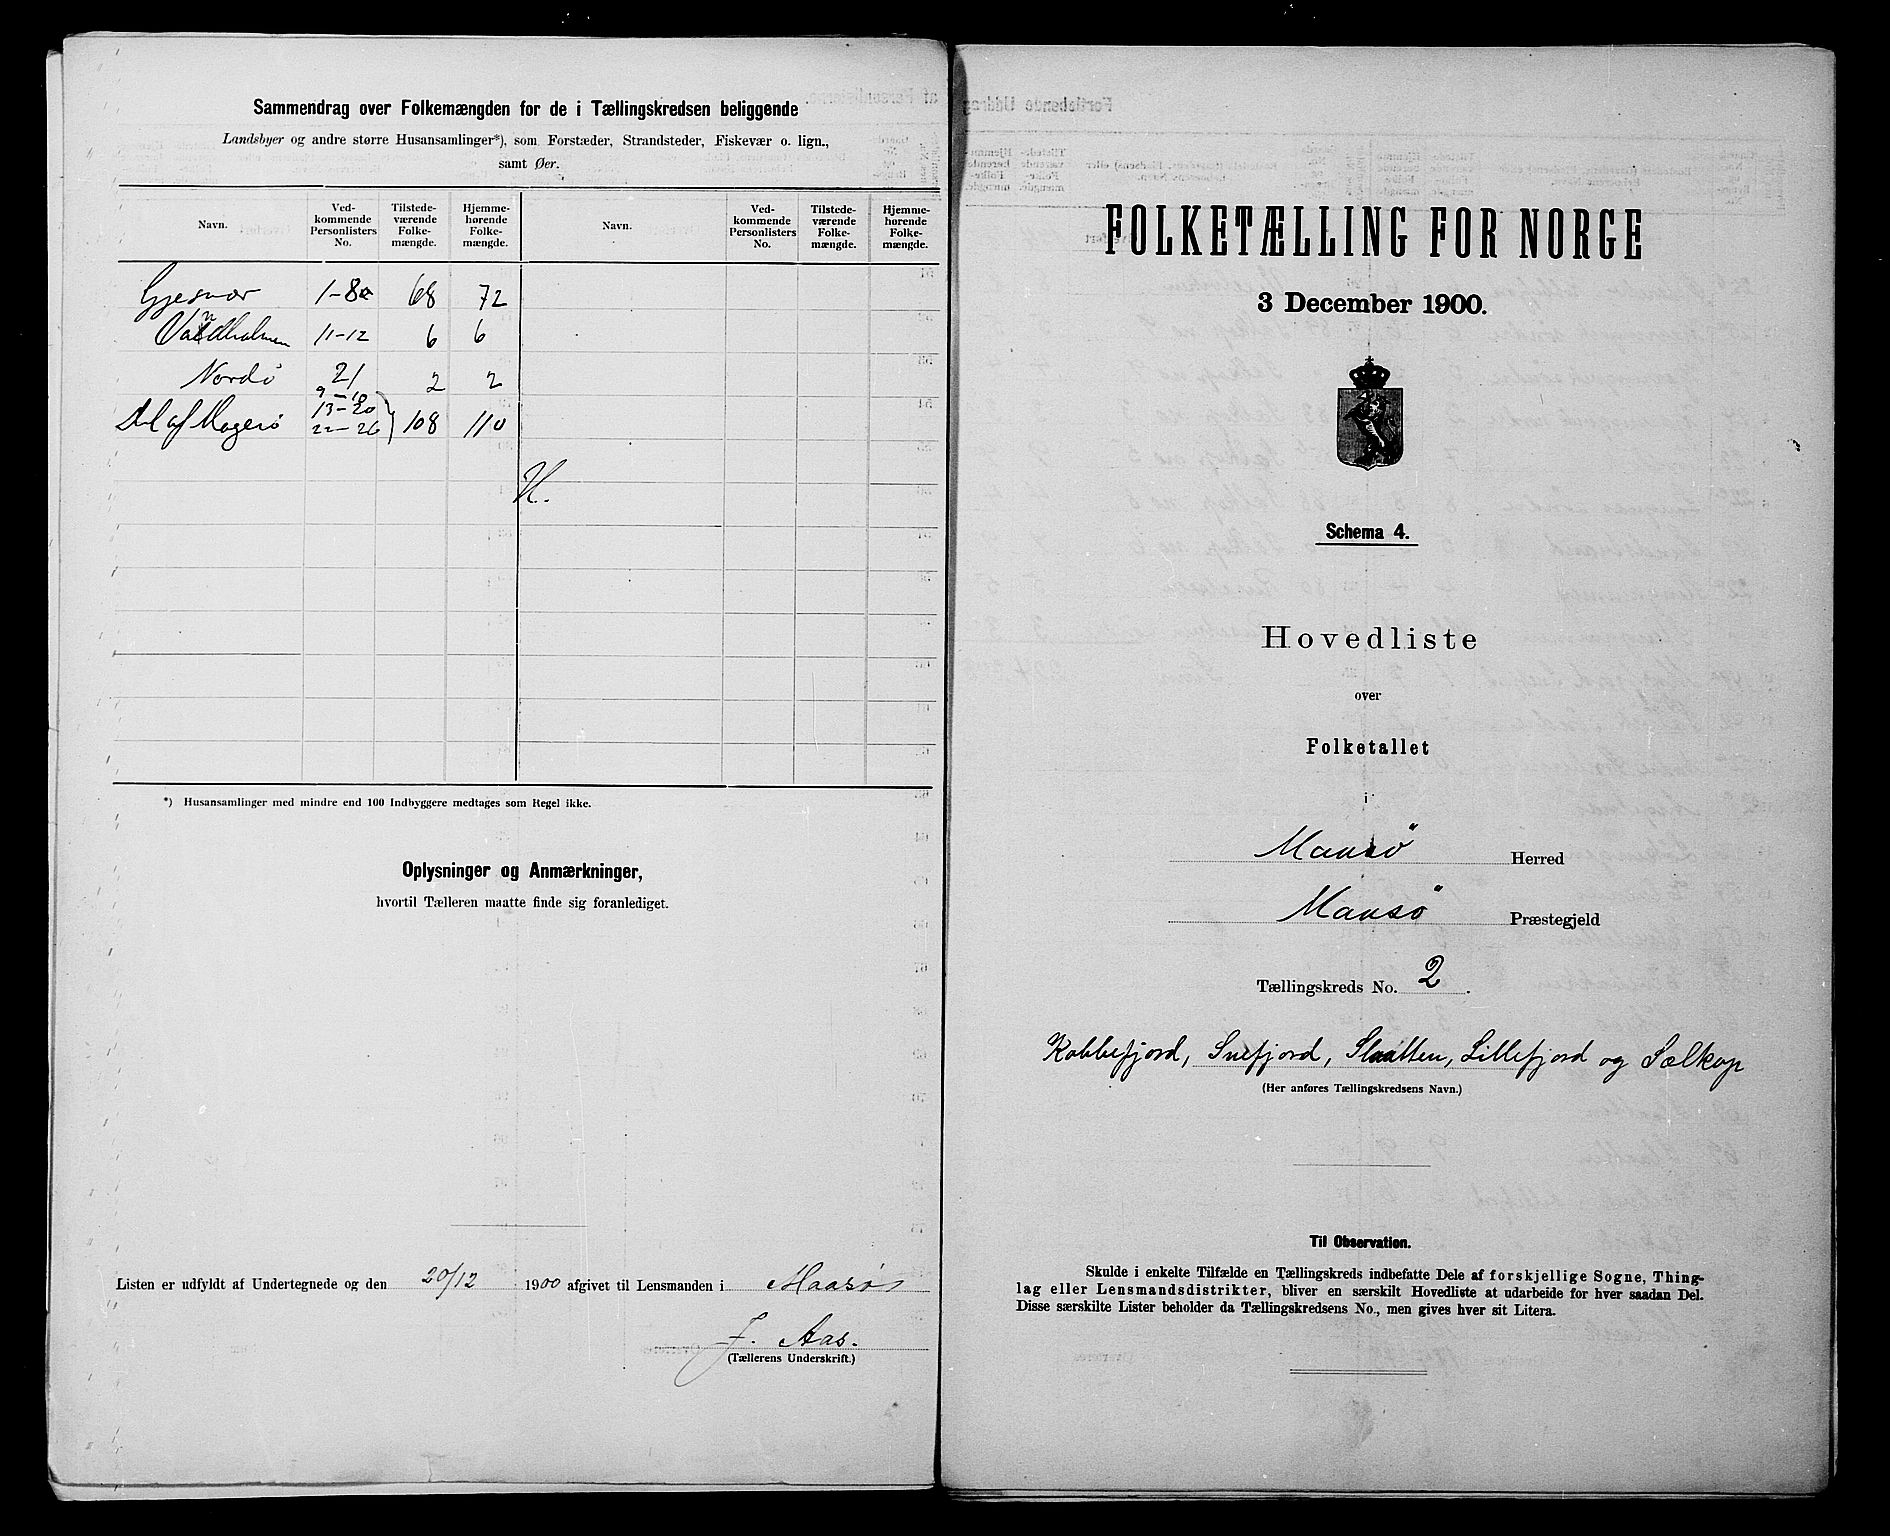 Sammendrag over Folkemængden for de i Tællingskredsen beliggende
Landsbyer og andre større Husansamlinger*), som Forstæder, Strandsteder, Fiskevær o. lign.,
samt Øer.
Navn. Ved-kommende Personlisters No. Tilstede-værende Folke-mængde. Hjemme-hørende Folke-mængde. Navn. Ved-kommende Personlisters No. Tilstede-værende Folke-mængde. Hjemme-hørende Folke-mængde.
Gjesvær 1-8 68 72
Vandholmen 11-12 6 6
Nordø 21 2 2
9-10
Del af Magerø 13-20 108 110
22-26
H.
*) Husansamlinger med mindre end 100 Indbyggere medtages som Regel ikke.
Oplysninger og Anmærkninger,
hvortil Tælleren maatte finde sig foranlediget.
Listen er udfyldt af Undertegnede og den 20/12 1900 afgivet til Lensmanden i Maasø
J. Aas.
(Tællerens Underskrift.)
FOLKETÆLLING FOR NORGE
3 December 1900.
Schema 4.
Hovedliste
over
Folketallet
i
Maasø Herred
Maasø Præstegjeld
Tællingskreds No. 2.
Kobbefjord, Snefjord, Slaatten, Lillefjord og Sælkop
(Her anføres Tællingskredsens Navn.)
Til Observation.
Skulde i enkelte Tilfælde en Tællingskreds indbefatte Dele af forskjellige Sogne, Thing-
lag eller Lensmandsdistrikter, bliver en særskilt Hovedliste at udarbeide for hver saadan Del.
Disse særskilte Lister beholder da Tællingskredsens No., men gives hver sit Litera.